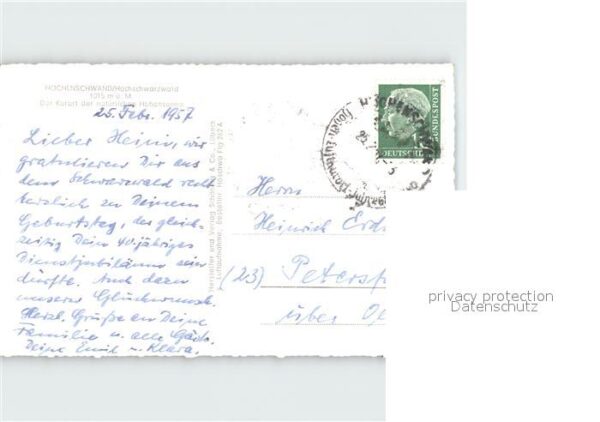 HÖCHENSCHWAND/Hochschwarzwald
1015 m ü. M.
Der Kurort der natürlichen Höhensonne
25. Febr. 1957
Lieber Heini, wir
gratulieren Dir aus
dem Schwarzwald recht
herzlich zu Deinem
Geburtstag, der gleich-
zeitig Dein 40jähriges
Dienstjubiläum sein
dürfte. Auch dazu
unseren Glückwunsch.
Herzl. Grüße an Deine
Familie u. alle Gäste.
Deine Emil u. Klara.
Hersteller und Verlag Schöning & Co., Lübeck
Luftaufnahme,
DEUTSCHE
BUNDESPOST
Herrn
Heinrich Erd
(23) Petersf
über O
privacy protection
Datenschutz